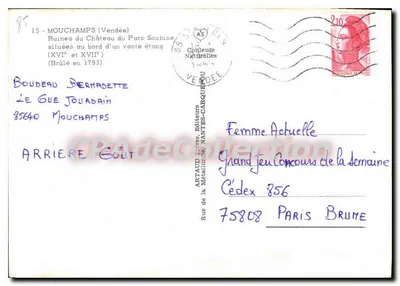 85
15 - MOUCHAMPS (Vendée)
Ruines du Château du Parc Soubise
situées au bord d'un vaste étang
(XVIe et XVIIe)
(Brûlé en 1793)
Couleurs
Naturelles
VENDEE
2,10
BOUDEAU BERNADETTE
LE GUE JOURDAIN
85640 MOUCHAMPS
ARRIERE GOÛT
ARTAUD Frères, Editeurs
Rue de la Métallurgie, NANTES-CARQUEFOU
Femme Actuelle
Grand Jeu Concours de la Semaine
Cédex 856
75808 PARIS BRUNE